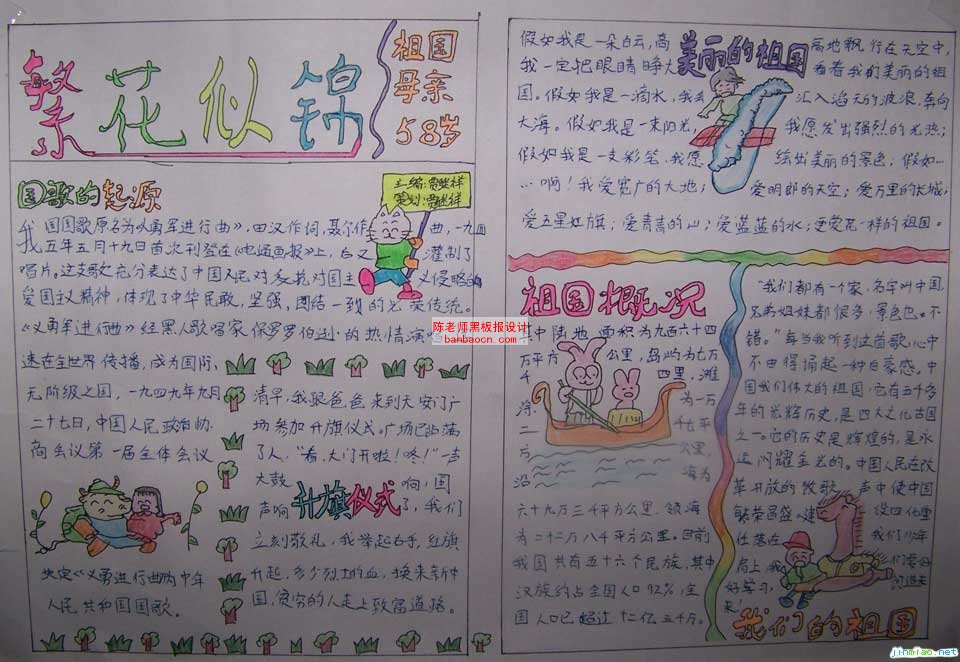 繁花似锦
祖国
母亲
58岁
国歌的起源
主编:
策划:
我国国歌原名为《义勇军进行曲》,由田汉作词,聂耳作曲,一九三
五年五月十九日首次刊登在《电通画报》上,后又灌制了
唱片。这支歌充分表达了中国人民对反抗对国主义侵略的
爱国主义精神,体现了中华民敢,坚强,团结一致的光荣传统。
《义勇军进行曲》经黑人歌唱家保罗罗伯逊的热情演唱
速在全世界传播,成为国际
无阶级之国,一九四九年九月
二十七日,中国人民政治协
商会议第一届全体会议
决定《义勇进行曲》为中华
人民共和国国歌。
清早,我跟爸爸来到天安门广
场参加升旗仪式。广场已站满
了人,“看,大门开啦!咚!”一声
大鼓响,国
声响了,我们
升旗仪式
立刻敬礼,我举起右手,红旗
升起,多少烈士的血,换来新中
国,贫穷的人走上致富道路。
美丽的祖国
假如我是一朵白云,高高地飘行在天空中,
我一定把眼睛睁大看看我们美丽的祖
国。假如我是一滴水,我汇入滔天的波浪,奔向
大海。假如我是一束阳光,我愿发出强烈的光热;
假如我是一支彩笔,我愿绘出美丽的景色;假如…
…啊!我爱宽广的大地;爱明郎的天空;爱万里的长城,
爱五星红旗;爱青青的山;爱蓝蓝的水;还爱花一样的祖国。
祖国概况
其中陆地面积为九百六十四
万平方公里,岛屿为七万
千四里,滩
涂一万
二千七平
万公里,
沿海为
六十九万三千平方公里,领海
为二十二万八千平方公里。目前
我国共有五十六个民族,其中
汉族约占全国人口92%,全国
人口已超过十二亿三千万。
“我们都有一个家,名字叫中国,
兄弟姐妹都很多,景色也不
错。”每当我听到这首歌,心中
不由得涌起一种自豪感。中
国我们伟大的祖国,它有五千多
年的光辉历史,是四大文化古国
之一。它的历史是辉煌的,是永
远闪耀金光的。中国人民在改
革开放的牧歌声中使中国
繁荣昌盛,建设四化重
任落在我们少年
肩上,我们要好
好学习,
来!
我们的祖国
陈老师黑板报设计
banbaocn.com
jinmiao.net